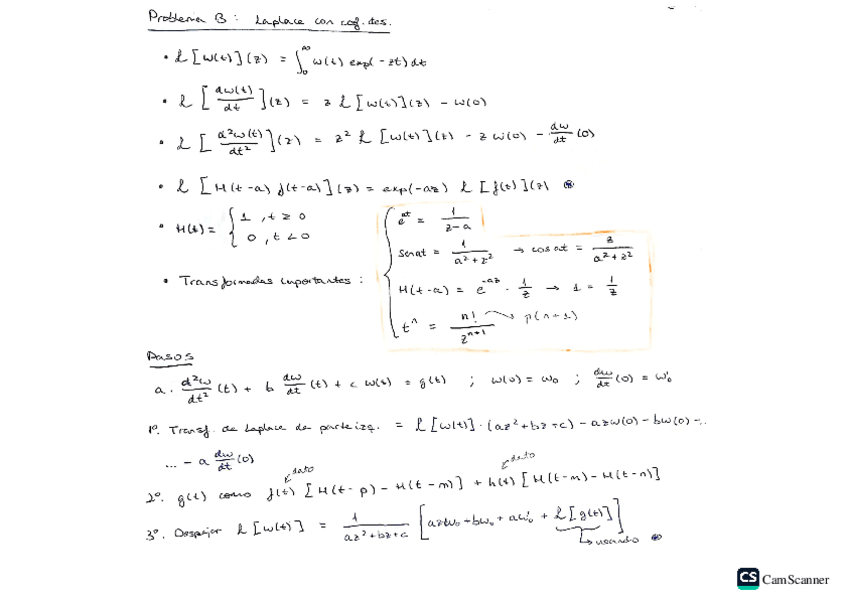 Problema B: Laplace con cof. des.
• L[w(t)](z) = ∫₀^∞ w(t) exp(-zt) dt
• L[dw(t)/dt](z) = z L[w(t)](z) - w(0)
• L[d²w(t)/dt²](z) = z² L[w(t)](z) - z w(0) - dw/dt (0)
• L[H(t-a) f(t-a)](z) = exp(-az) L[f(t)](z) ⊛
• H(t) = { 1, t ≥ 0
0, t < 0
• Transformadas importantes:
e^at = 1/(z-a)
sen at = 1/(a²+z²) → cos at = z/(a²+z²)
H(t-a) = e^-az · 1/z → 1 = 1/z
t^n = n!/z^(n+1) → Γ(n+1)
Pasos
a. d²w/dt² (t) + b dw/dt (t) + c w(t) = g(t) ; w(0) = w₀ ; dw/dt (0) = w₀'
1º. Transf. de Laplace de parte izq. = L[w(t)]·(az²+bz+c) - azw(0) - bw(0) -...
... - a dw/dt (0)
dato dato
2º. g(t) como f(t) [H(t-p) - H(t-m)] + h(t) [H(t-m) - H(t-n)]
3º. Despejar L[w(t)] = 1/(az²+bz+c) [azw₀ + bw₀ + aw₀' + L[g(t)]]
usando ⊛
CS CamScanner